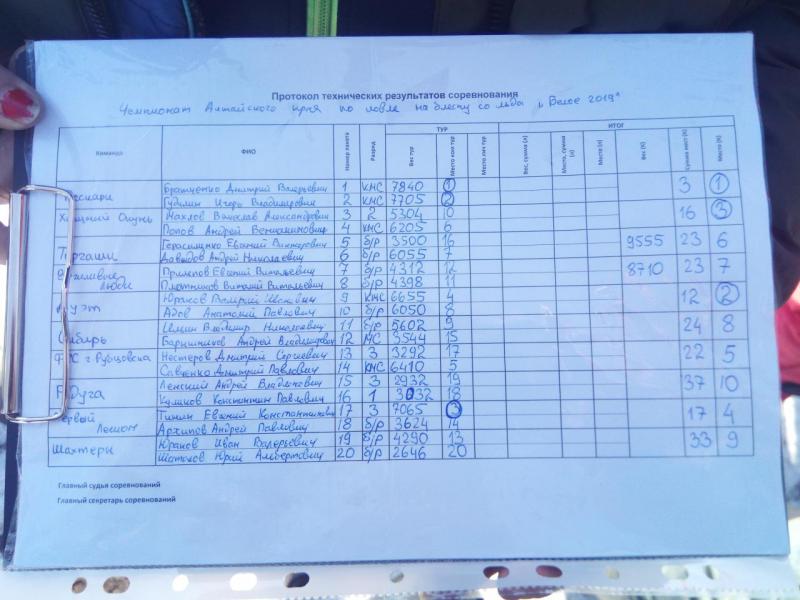 Протокол технических результатов соревнования
Чемпионат Алтайского края по ловле на блесну со льда "Белое 2019"
Команда ФИО Номер пакета Разряд ТУР ИТОГ
Вес тур Место ком тур Место лич тур Вес, сумма (л) Место, сумма (л) Место (л) Вес (К) Сумма мест (К) Место (К)
Братченко Дмитрий Валерьевич 1 КМС 7840 1 3 1
Игорь Владимирович 2 КМС 7705 2
Хищный Окунь Махлов Вячеслав Александрович 3 2 5304 10 16 3
Попов Андрей Вениаминович 4 КМС 6205 6
Торгаши Герасименко Евгений Викторович 5 б/р 3500 16 9555 23 6
Давыдов Андрей Николаевич 6 б/р 6055 7
Прилепов Евгений Витальевич 7 б/р 4312 12 8710 23 7
люди Плотников Виталий Витальевич 8 б/р 4398 11
Юранов Валерий 9 КМС 6655 4 12 2
Адов Анатолий Павлович 10 б/р 6050 8
Сибирь Владимир Николаевич 11 б/р 5602 9 24 8
Барышников Андрей Владимирович 12 МС 3544 15
г Рубцовска Нестеров Дмитрий Сергеевич 13 3 3292 17 22 5
Савченко Дмитрий Павлович 14 КМС 6410 5
Радуга Ленский Андрей 15 3 2932 19 37 10
Куликов Константин Павлович 16 1 3032 18
Первый Тишин Евгений Константинович 17 3 7065 3 17 4
Архипов Андрей Павлович 18 б/р 3624 14
Шахтеры Юранов Иван Валерьевич 19 б/р 4290 13 33 9
Юрий Альбертович 20 б/р 2646 20
Главный судья соревнований
Главный секретарь соревнований